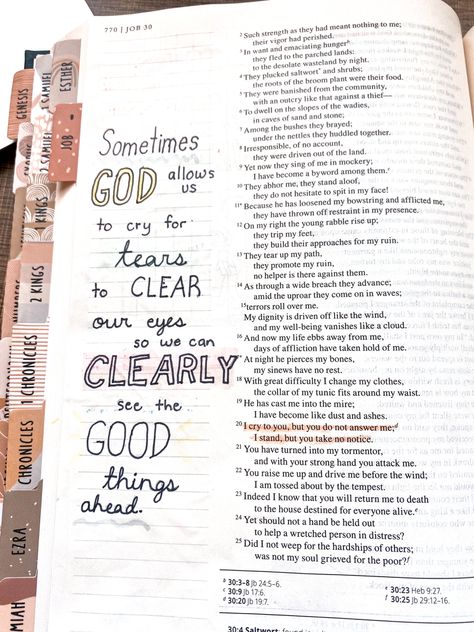 770 | JOB 30
GENESIS
SAMUEL
ESTHER
2 SAMUEL
JOB
KINGS
2 KINGS
1 CHRONICLES
CHRONICLES
EZRA
MIAH
Sometimes
GOD allows
us
to cry for
tears
to CLEAR
our eyes
so we can
CLEARLY
see the
GOOD
things
ahead.
2 Such strength as they had meant nothing to me;
their vigor had perished.
3 In want and emaciating hunger b
they fled to the parched lands:
to the desolate wasteland by night.
4 They plucked saltwort* and shrubs;
the roots of the broom plant were their food.
5 They were banished from the community,
with an outcry like that against a thief—
6 To dwell on the slopes of the wadies,
in caves of sand and stone;
7 Among the bushes they brayed;
under the nettles they huddled together.
8 Irresponsible, of no account,
they were driven out of the land.
9 Yet now they sing of me in mockery;
I have become a byword among them. c
10 They abhor me, they stand aloof,
they do not hesitate to spit in my face!
11* Because he has loosened my bowstring and afflicted me,
they have thrown off restraint in my presence.
12 On my right the young rabble rise up;
they trip my feet,
they build their approaches for my ruin.
13 They tear up my path,
they promote my ruin,
no helper is there against them.
14 As through a wide breach they advance;
amid the uproar they come on in waves;
15 terrors roll over me.
My dignity is driven off like the wind,
and my well-being vanishes like a cloud.
16 And now my life ebbs away from me,
days of affliction have taken hold of me.
17 At night he pierces my bones,
my sinews have no rest.
18 With great difficulty I change my clothes,
the collar of my tunic fits around my waist.
19 He has cast me into the mire;
I have become like dust and ashes.
20 I cry to you, but you do not answer me; d
I stand, but you take no notice.
21 You have turned into my tormentor,
and with your strong hand you attack me.
22 You raise me up and drive me before the wind;
I am tossed about by the tempest.
23 Indeed I know that you will return me to death
to the house destined for everyone alive. e
24 Yet should not a hand be held out
to help a wretched person in distress?
25 Did I not weep for the hardships of others;
was not my soul grieved for the poor? f
b 30:3–8 Jb 24:5–6.
c 30:9 Jb 17:6.
d 30:20 Jb 19:7.
e 30:23 Heb 9:27.
f 30:25 Jb 29:12–16.
30:4 Saltwort: